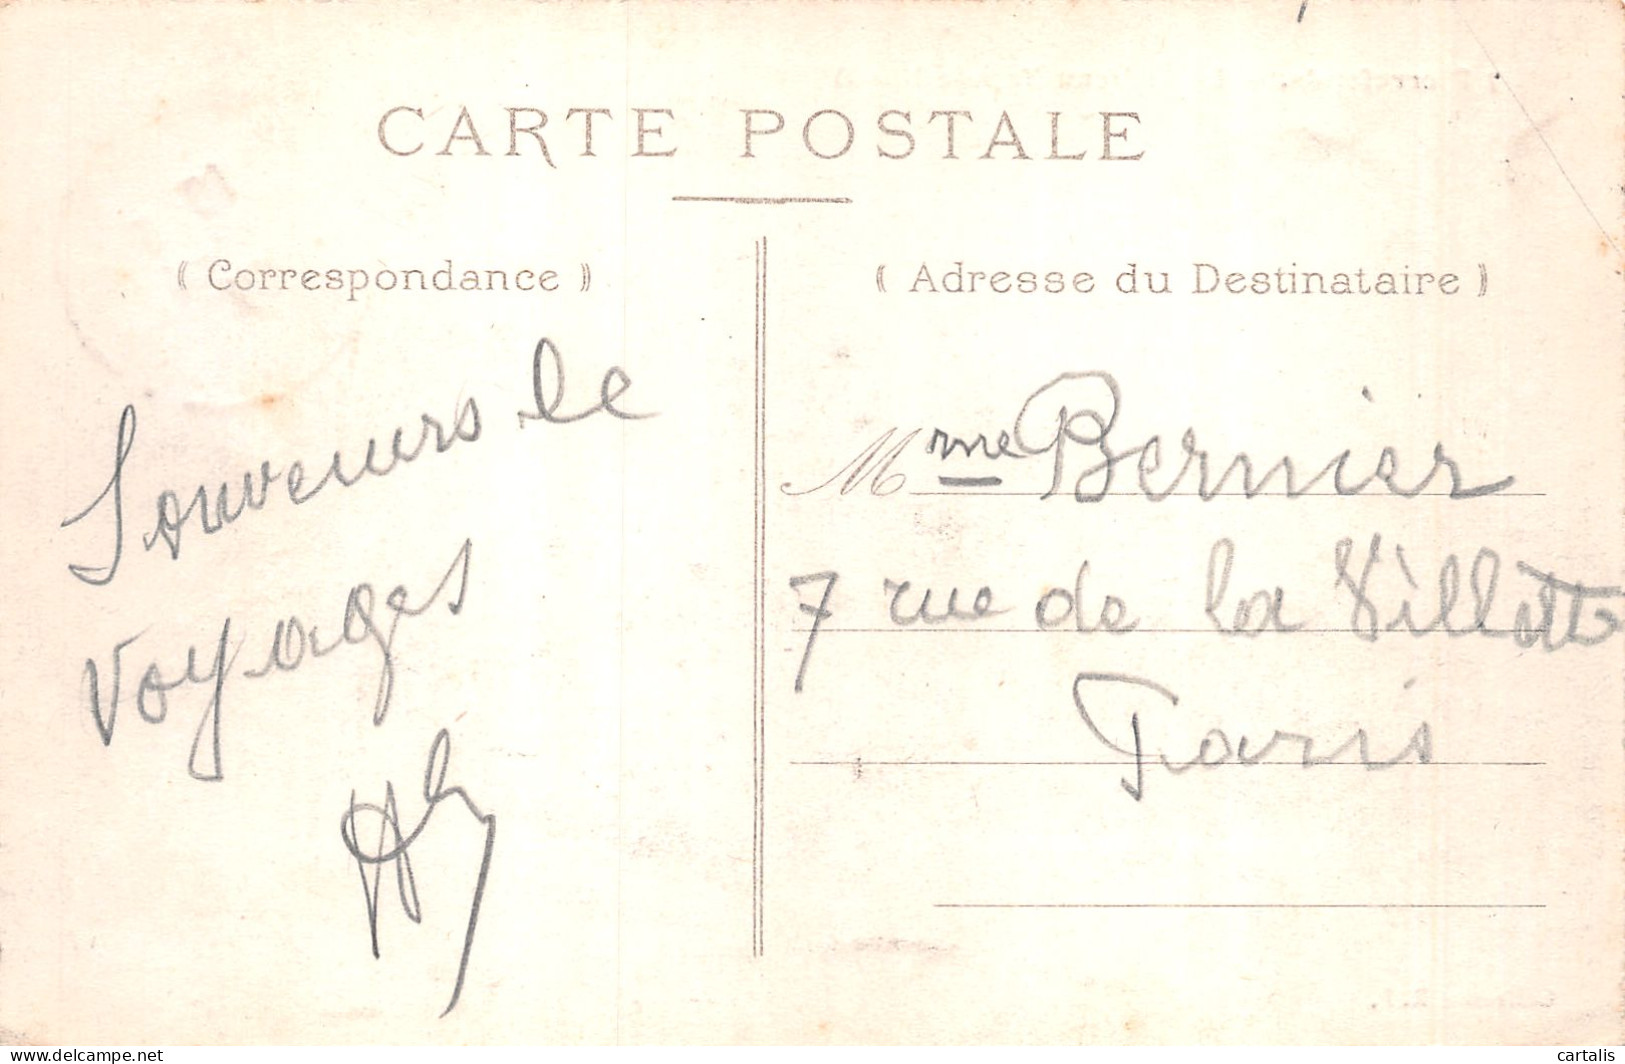 CARTE POSTALE
⸨ Correspondance ⸩
⸨ Adresse du Destinataire ⸩
Souveurs de
voyages
Mme Bernier
7 rue de la Villette
Paris
delcampe.net
cartalis